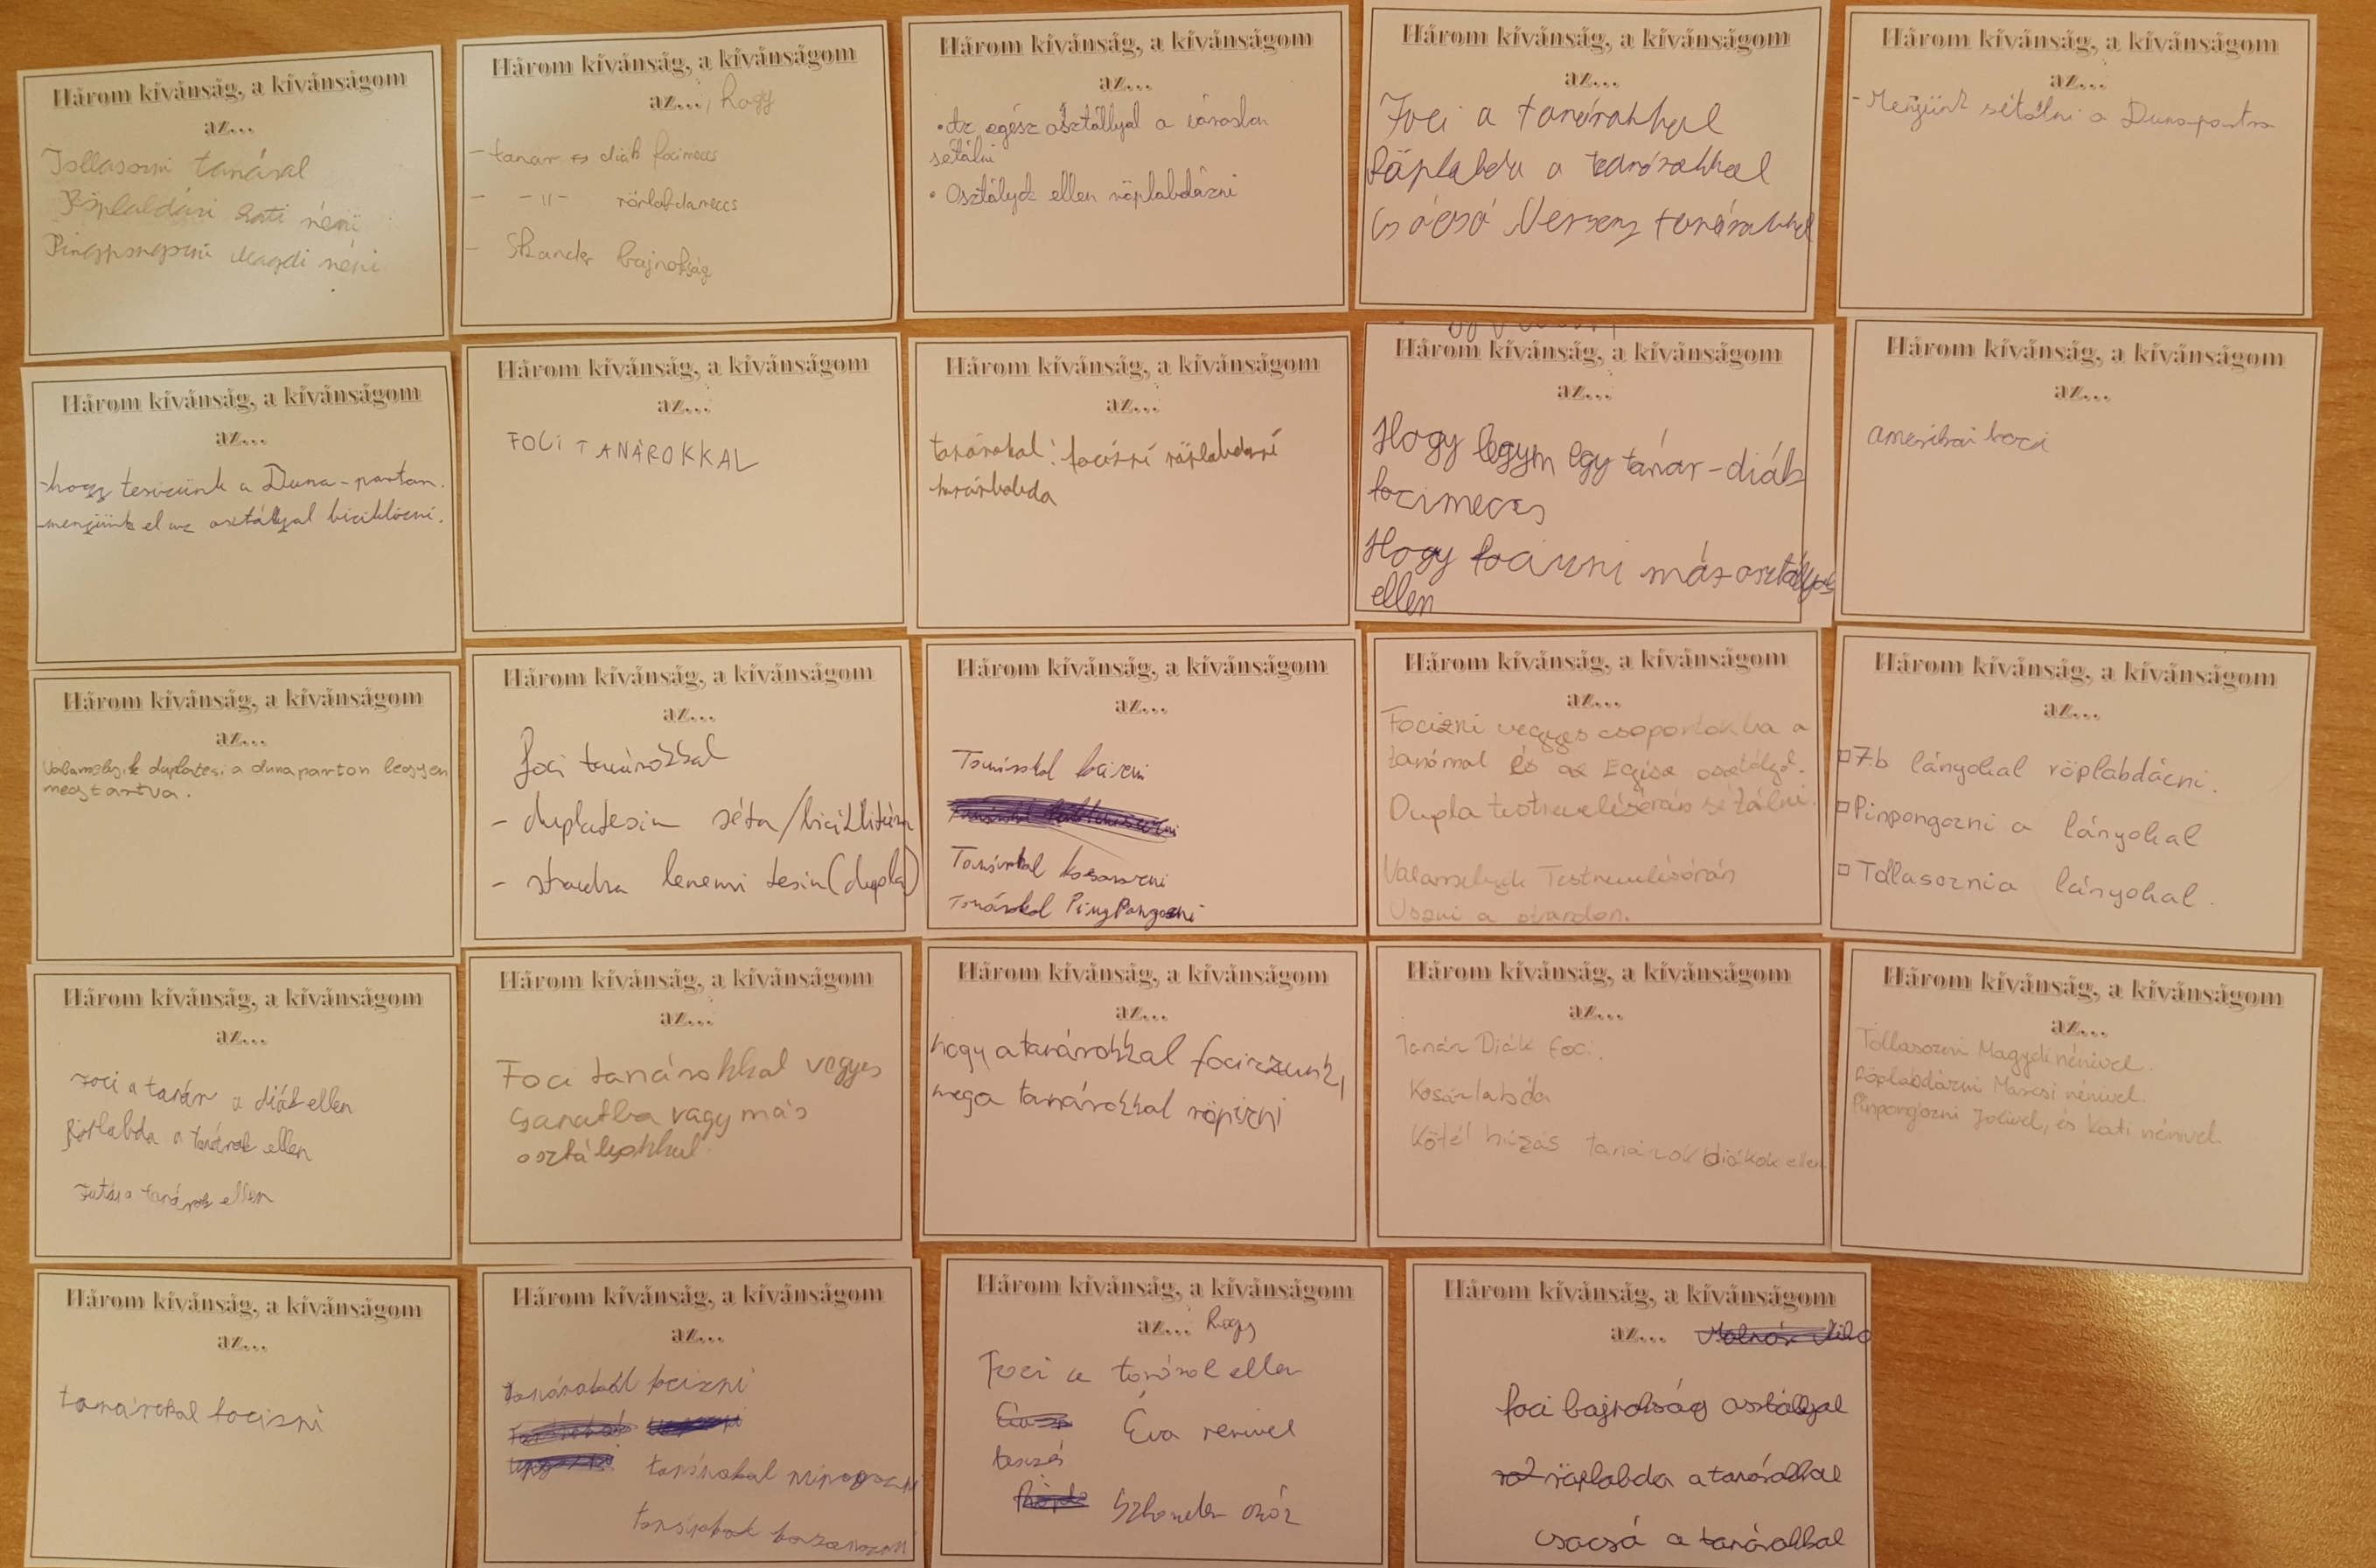 Három kívánság, a kívánságom
az...
Tollasozni tanáral
Röplabdázni Kati néni
Pingpongozni Magdi néni
Három kívánság, a kívánságom
az..., hogy
- tanár és diák focimeccs
- -11- röplabdameccs
- Skander bajnokság
Három kívánság, a kívánságom
az...
• Az egész osztállyal a városban
sétálni
• Osztályok ellen röplabdázni
Három kívánság, a kívánságom
az...
Foci a tanárokkal
Röplabda a tanárokkal
Csócsó Verseny tanárokkal
Három kívánság, a kívánságom
az...
- Menjünk sétálni a Dunapartra
Három kívánság, a kívánságom
az...
- hogy tesizünk a Duna-parton.
- menjünk el az osztályal biciklizni.
Három kívánság, a kívánságom
az...
FOCI TANÁROKKAL
Három kívánság, a kívánságom
az...
tanárokal: focizni röplabdazni
kosárlabda
Három kívánság, a kívánságom
az...
Hogy legyen egy tanár-diák
focimeccs
Hogy focizni más osztályok
ellen
Három kívánság, a kívánságom
az...
amerikai foci
Három kívánság, a kívánságom
az...
Valamelyik duplatesi a dunaparton legyen
megtartva.
Három kívánság, a kívánságom
az...
foci tanárokkal
- duplatesin séta/biciklitúra
- strandra lemenni tesin (dupla)
Három kívánság, a kívánságom
az...
Tanárokal focizni
Tanárokal kosarazni
Tanárokal PingPongozni
Három kívánság, a kívánságom
az...
Focizni vegyes csoportokba a
tanárral és az Egész osztályal.
Dupla testnevelésórán sétálni.
Valamelyik Testnevelésórán
Úszni a strandon.
Három kívánság, a kívánságom
az...
7.b lányokal röplabdázni.
Pinpongozni a lányokal
Tollasoznia lányokal.
Három kívánság, a kívánságom
az...
Foci a tanár a diák ellen
Röplabda a tanárok ellen
Futás a tanárok ellen
Három kívánság, a kívánságom
az...
Foci tanárokkal vegyes
csapatba vagy más
osztályokkal
Három kívánság, a kívánságom
az...
hogy a tanárokkal focizzunk,
meg a tanárokkal röpizni
Három kívánság, a kívánságom
az...
Tanár Diák foci.
Kosárlabda
Kötél húzás tanárok diákok ellen
Három kívánság, a kívánságom
az...
Tollasozni Magdi nénivel.
Röplabdázni Marcsi nénivel.
Pinpongozni Julival, és Kati nénivel.
Három kívánság, a kívánságom
az...
tanárokal focizni
Három kívánság, a kívánságom
az...
tanárokkal focizni
tanárokal
Három kívánság, a kívánságom
az... hogy
Foci a tanárok ellen
Éva nénivel
Három kívánság, a kívánságom
az...
foci bajnokság osztályal
röplabda a tanárokkal
csocsó a tanárokkal